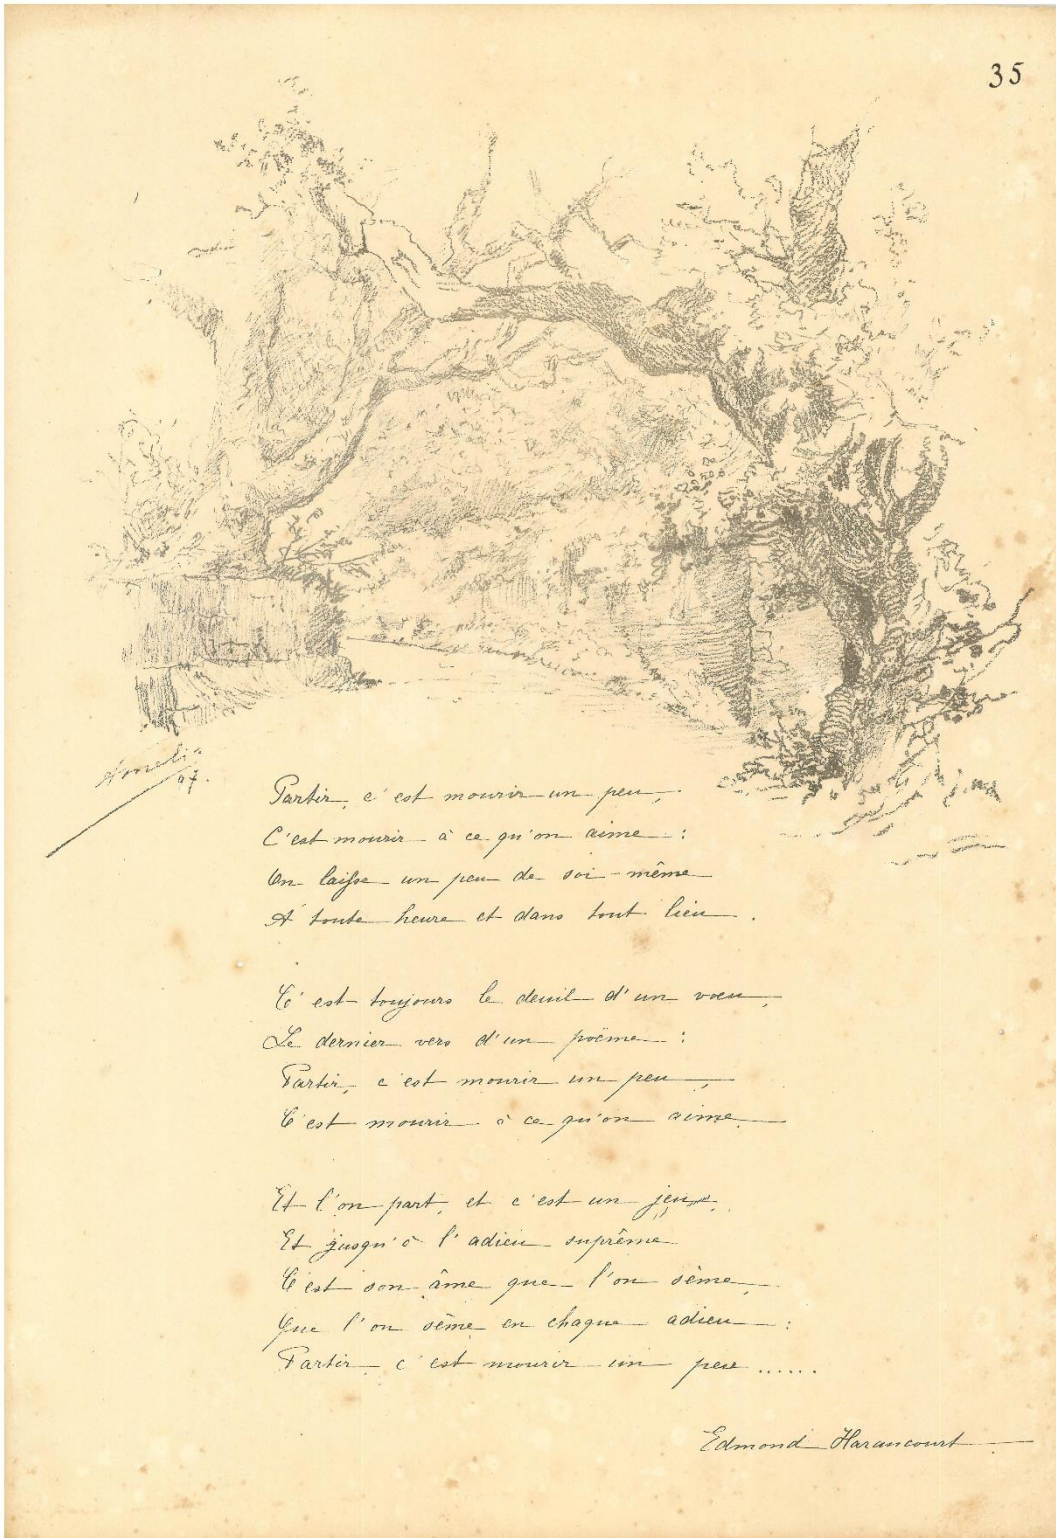 35
Amelia
Partir, c'est mourir un peu,
C'est mourir à ce qu'on aime :
On laisse un peu de soi-même
A toute heure et dans tout lieu.
C'est toujours le deuil d'un vœu,
Le dernier vers d'un poëme :
Partir, c'est mourir un peu,
C'est mourir à ce qu'on aime.
Et l'on part, et c'est un jeu,
Et jusqu'à l'adieu suprême
C'est son âme que l'on sème,
Que l'on sème en chaque adieu :
Partir c'est mourir un peu ......
Edmond Harancourt